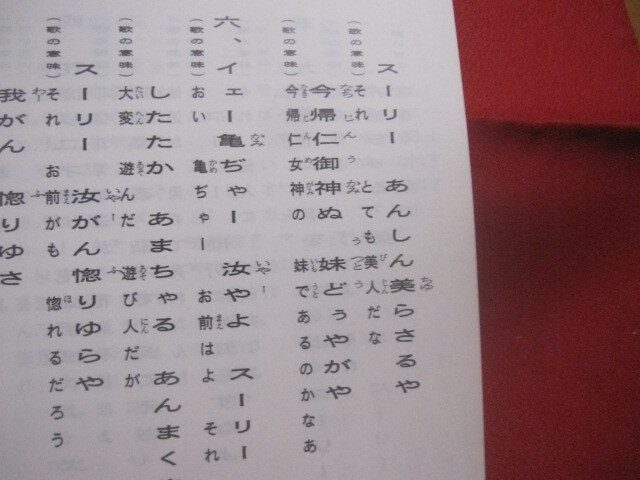 スーリー あんしん美らさるや
（歌の意味）それ とても美人だな
今帰仁御神ぬ 妹どぅやがや
（歌の意味）今帰仁女神の 妹であるのかなあ
六、イェー亀ぢゃー 汝やよ スーリー
（歌の意味）おい 亀ぢゃー お前はよ それ
したたか あまちゃる あんまく
（歌の意味）大変 遊んだ 遊び人だが
スーリー 汝がん惚りゆらや
（歌の意味）それ お前がも 惚れるだろう
我がん 惚りゆさ